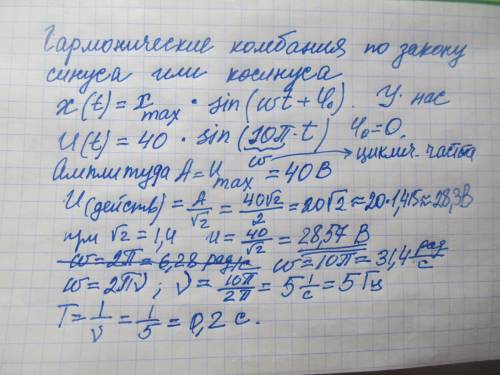 Гармонические комбания по закону
синуса или косинуса
x(t) = x max · sin(ωt + φ₀). У нас
U(t) = 40 · sin(10π·t) φ₀ = 0.
ω → циклич. частота
Амплитуда A = U max = 40 В
U(действ) = A/√2 = 40√2/2 = 20√2 ≈ 20·1,415 ≈ 28,3В
при √2 = 1,4 U = 40/√2 = 28,57 В
ω = 2π = 6,28 рад/с ω = 10π = 3,14 рад/с
ω = 2πν ; ν = 10π/2π = 5 1/с = 5 Гц
T = 1/ν = 1/5 = 0,2 с.